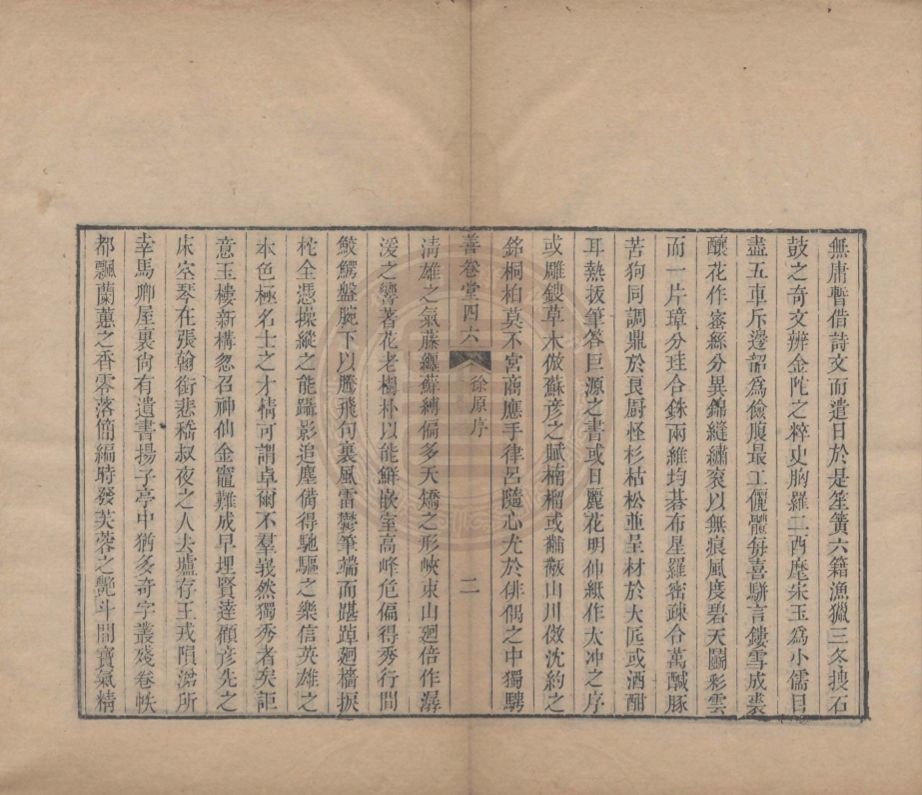 無庸暫借詩文而遣日於是笙簧六籍漁獵三冬搜石
鼓之奇文辨金陀之粹史胸羅二酉麾宋玉為小儒目
盡五車斥邊韶為儉腹最工儷體每喜駢言鏤雪成裘
釀花作蜜絲分異錦縫繡衮以無痕風度碧天鬬彩雲
而一片璋分珪合銖兩維均碁布星羅密疎合萬醎豚
苦狗同調鼎於良厨怪杉枯松並呈材於大匠或酒酣
耳熱拔筆答巨源之書或日麗花明伸紙作太冲之序
或雕鎪草木倣蘇彦之賦楠榴或黼黻山川倣沈約之
銘桐柏莫不宮商應手律呂隨心尤於俳偶之中獨騁
善卷堂四六 徐原序 二
淸雄之氣藤纏蘚縛偏多夭矯之形峽束山廻倍作潺
湲之響著花老樹朴以能鮮嵌空高峰危偏得秀行間
鮫鰐盤腕下以騰飛句裏風雷鬱筆端而踸踔廻檣捩
柁全憑操縱之能躡影追塵備得馳驅之樂信英雄之
本色極名士之才情可謂卓爾不羣峩然獨秀者矣詎
意玉樓新構忽召神仙金竈難成早埋賢達顧彦先之
床空琴在張翰銜悲嵇叔夜之人去壚存王戎隕涕所
幸馬卿屋裏尙有遺書揚子亭中猶多奇字叢殘卷帙
都飄蘭蕙之香零落簡編時發芙蓉之艶斗間寶氣精